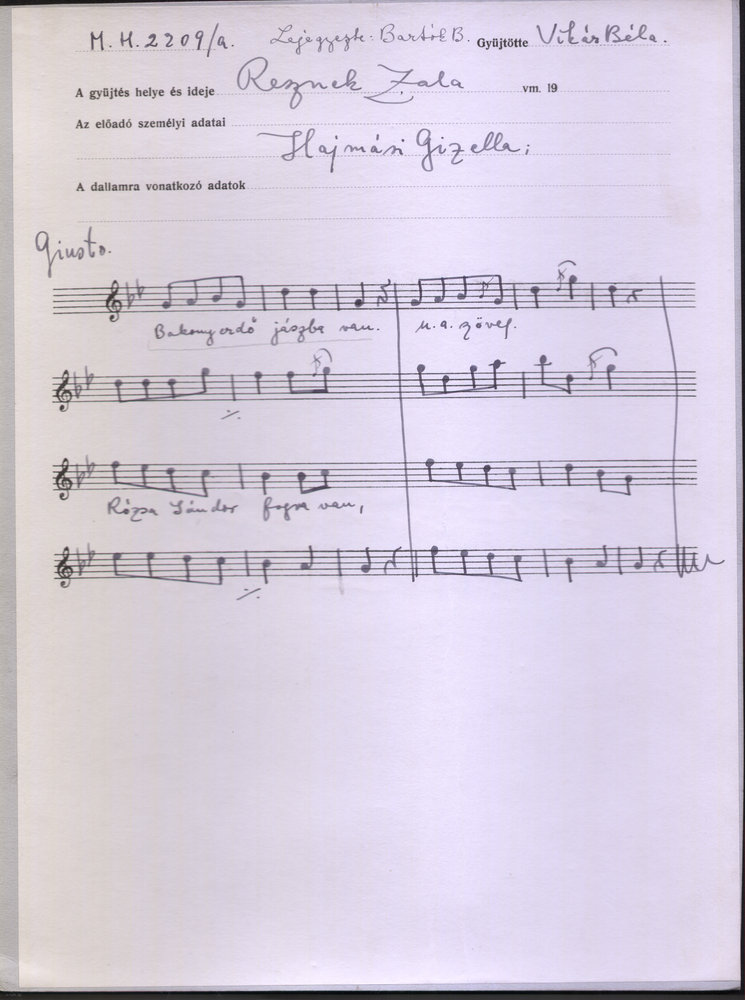 M. H. 2209/a. Lejegyezte: Bartók B. Gyüjtötte Vikár Béla.
A gyüjtés helye és ideje Reznek Zala vm. 19
Az előadó személyi adatai
Hajmási Gizella;
A dallamra vonatkozó adatok
Giusto.
Bakonyerdő jászba van. u. a. szöveg.
Rózsa Sándor fogva van,